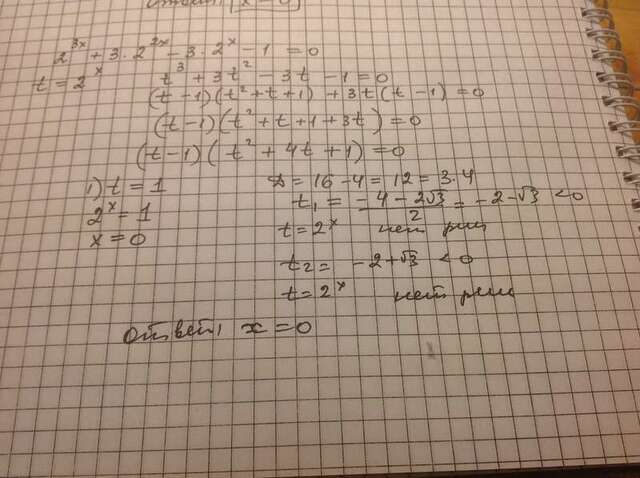 Ответ: x = 0
2^{3x} + 3 · 2^{2x} - 3 · 2^x - 1 = 0
t = 2^x t³ + 3t² - 3t - 1 = 0
(t - 1)(t² + t + 1) + 3t(t - 1) = 0
(t - 1)(t² + t + 1 + 3t) = 0
(t - 1)(t² + 4t + 1) = 0
1) t = 1 D = 16 - 4 = 12 = 3 · 4
2^x = 1 t₁ = (-4 - 2√3)/2 = -2 - √3 < 0
x = 0 t = 2^x нет реш
t₂ = -2 + √3 < 0
t = 2^x нет реш
Ответ: x = 0